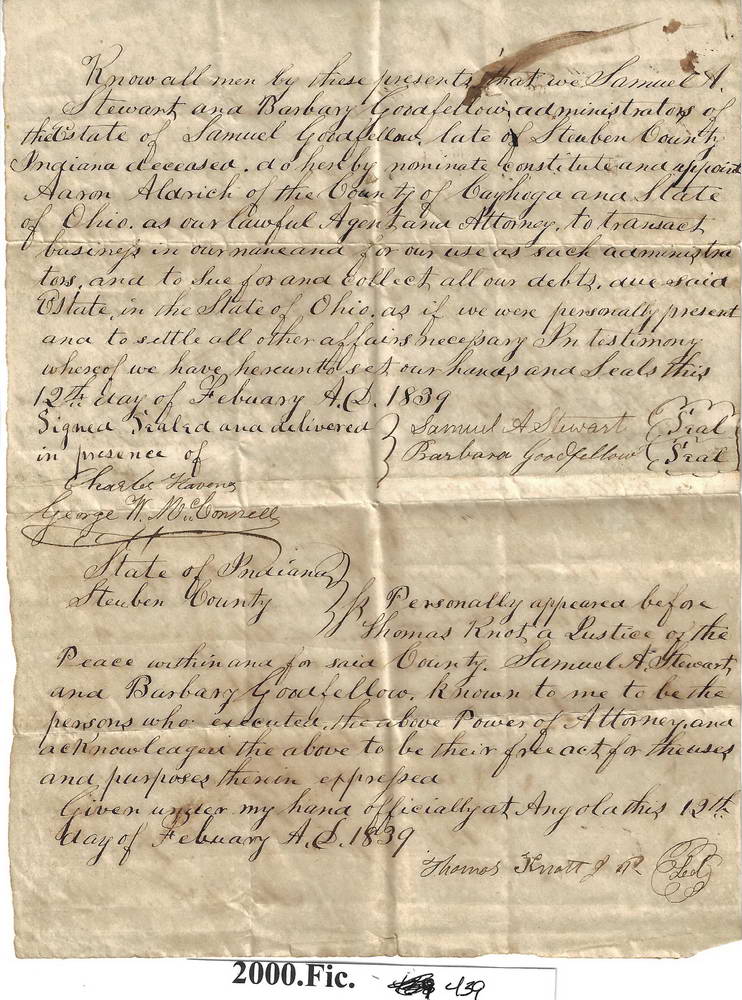 Know all men by these presents, that we Samuel A.
Stewart and Barbary Goodfellow, administrators of
the Estate of Samuel Goodfellow, late of Steuben County
Indiana deceased. do hereby nominate constitute and appoint
Aaron Aldrich of the County of Cayhoga and State
of Ohio. as our lawful Agent and Attorney. to transact
business in our name and for our use as such administra
tors. and to sue for and collect all our debts. due said
Estate, in the State of Ohio. as if we were personally present
and to settle all other affairs necessary In testimony
whereof we have hereunto set our hands and Seals this
12th day of Febuary A.D. 1839
Signed Sealed and delivered
in presence of
Samuel A Stewart Seal
Barbara Goodfellow Seal
Charles Havens
George W. McConnell
State of Indiana
Steuben County ss Personally appeared before
Thomas Knot, a Justice of the
Peace within and for said County. Samuel A. Stewart
and Barbary Goodfellow. known to me to be the
persons who executed, the above Power of Attorney. and
acknowleaged the above to be their free act for the uses
and purposes therein expressed
Given under my hand officially at Angola this 12th
day of Febuary A.D. 1839
Thomas Knott J P. Seal
2000.Fic. 439